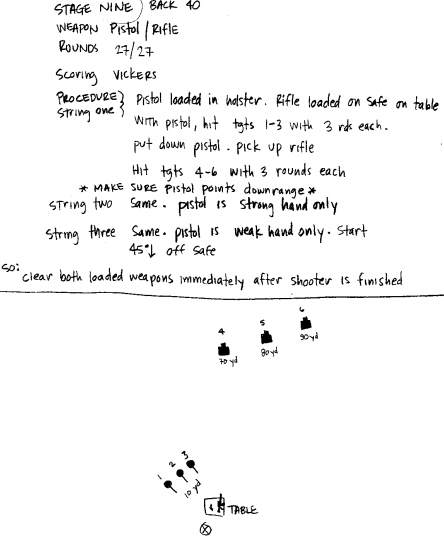 STAGE NINE) BACK 40
WEAPON Pistol / RIFLE
ROUNDS 27/27
Scoring VICKERS
PROCEDURE} Pistol loaded in holster. Rifle loaded on safe on table
String one} With pistol, hit tgts 1-3 with 3 rds each.
put down pistol. pick up rifle
Hit tgts 4-6 with 3 rounds each
* MAKE SURE Pistol points downrange *
String two Same. pistol is strong hand only
String three Same. pistol is weak hand only. Start
45°↓ off safe
SO: clear both loaded weapons immediately after shooter is finished
4 5 6
70 yd 80 yd 90 yd
1 2 3
10 yd
TABLE